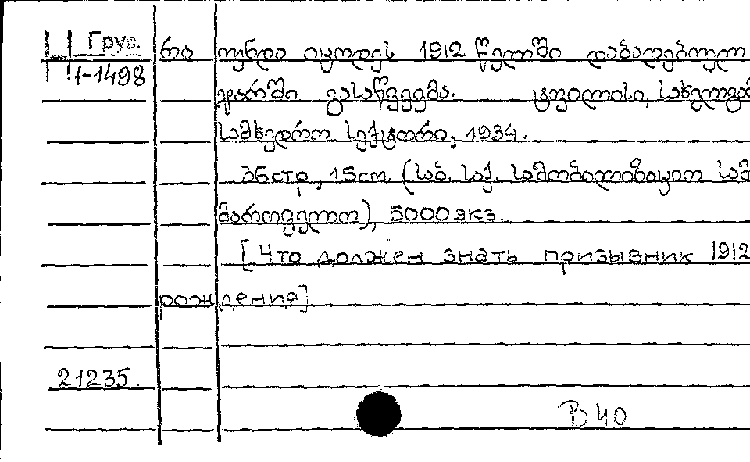 Груз.
1-1498
რა უნდა იცოდეს 1912 წელში დაბადებულ
ჯარში გასაწვევმა. ტფილისი, სახელგა
სამხედრო სექტორი, 1934.
36стр, 15cm. (საბ. საქ. სამობილიზაციო სამ
მართველო), 5000 экз
[Что должен знать призывник 1912
рождения]
21235.
В 40